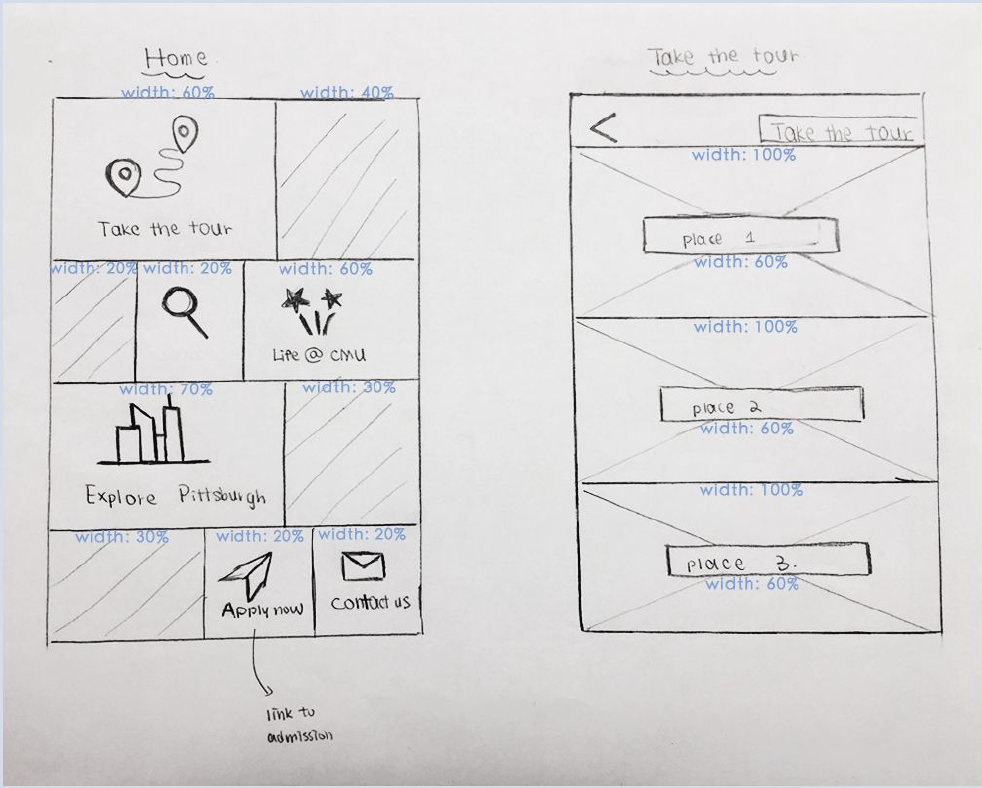 Home
width: 60%
width: 40%
Take the tour
width: 20%
width: 20%
width: 60%
Life @ CMU
width: 70%
width: 30%
Explore Pittsburgh
width: 30%
width: 20%
width: 20%
Apply now
Contact us
link to
admission
Take the tour
Take the tour
width: 100%
place 1
width: 60%
width: 100%
place 2
width: 60%
width: 100%
place 3.
width: 60%